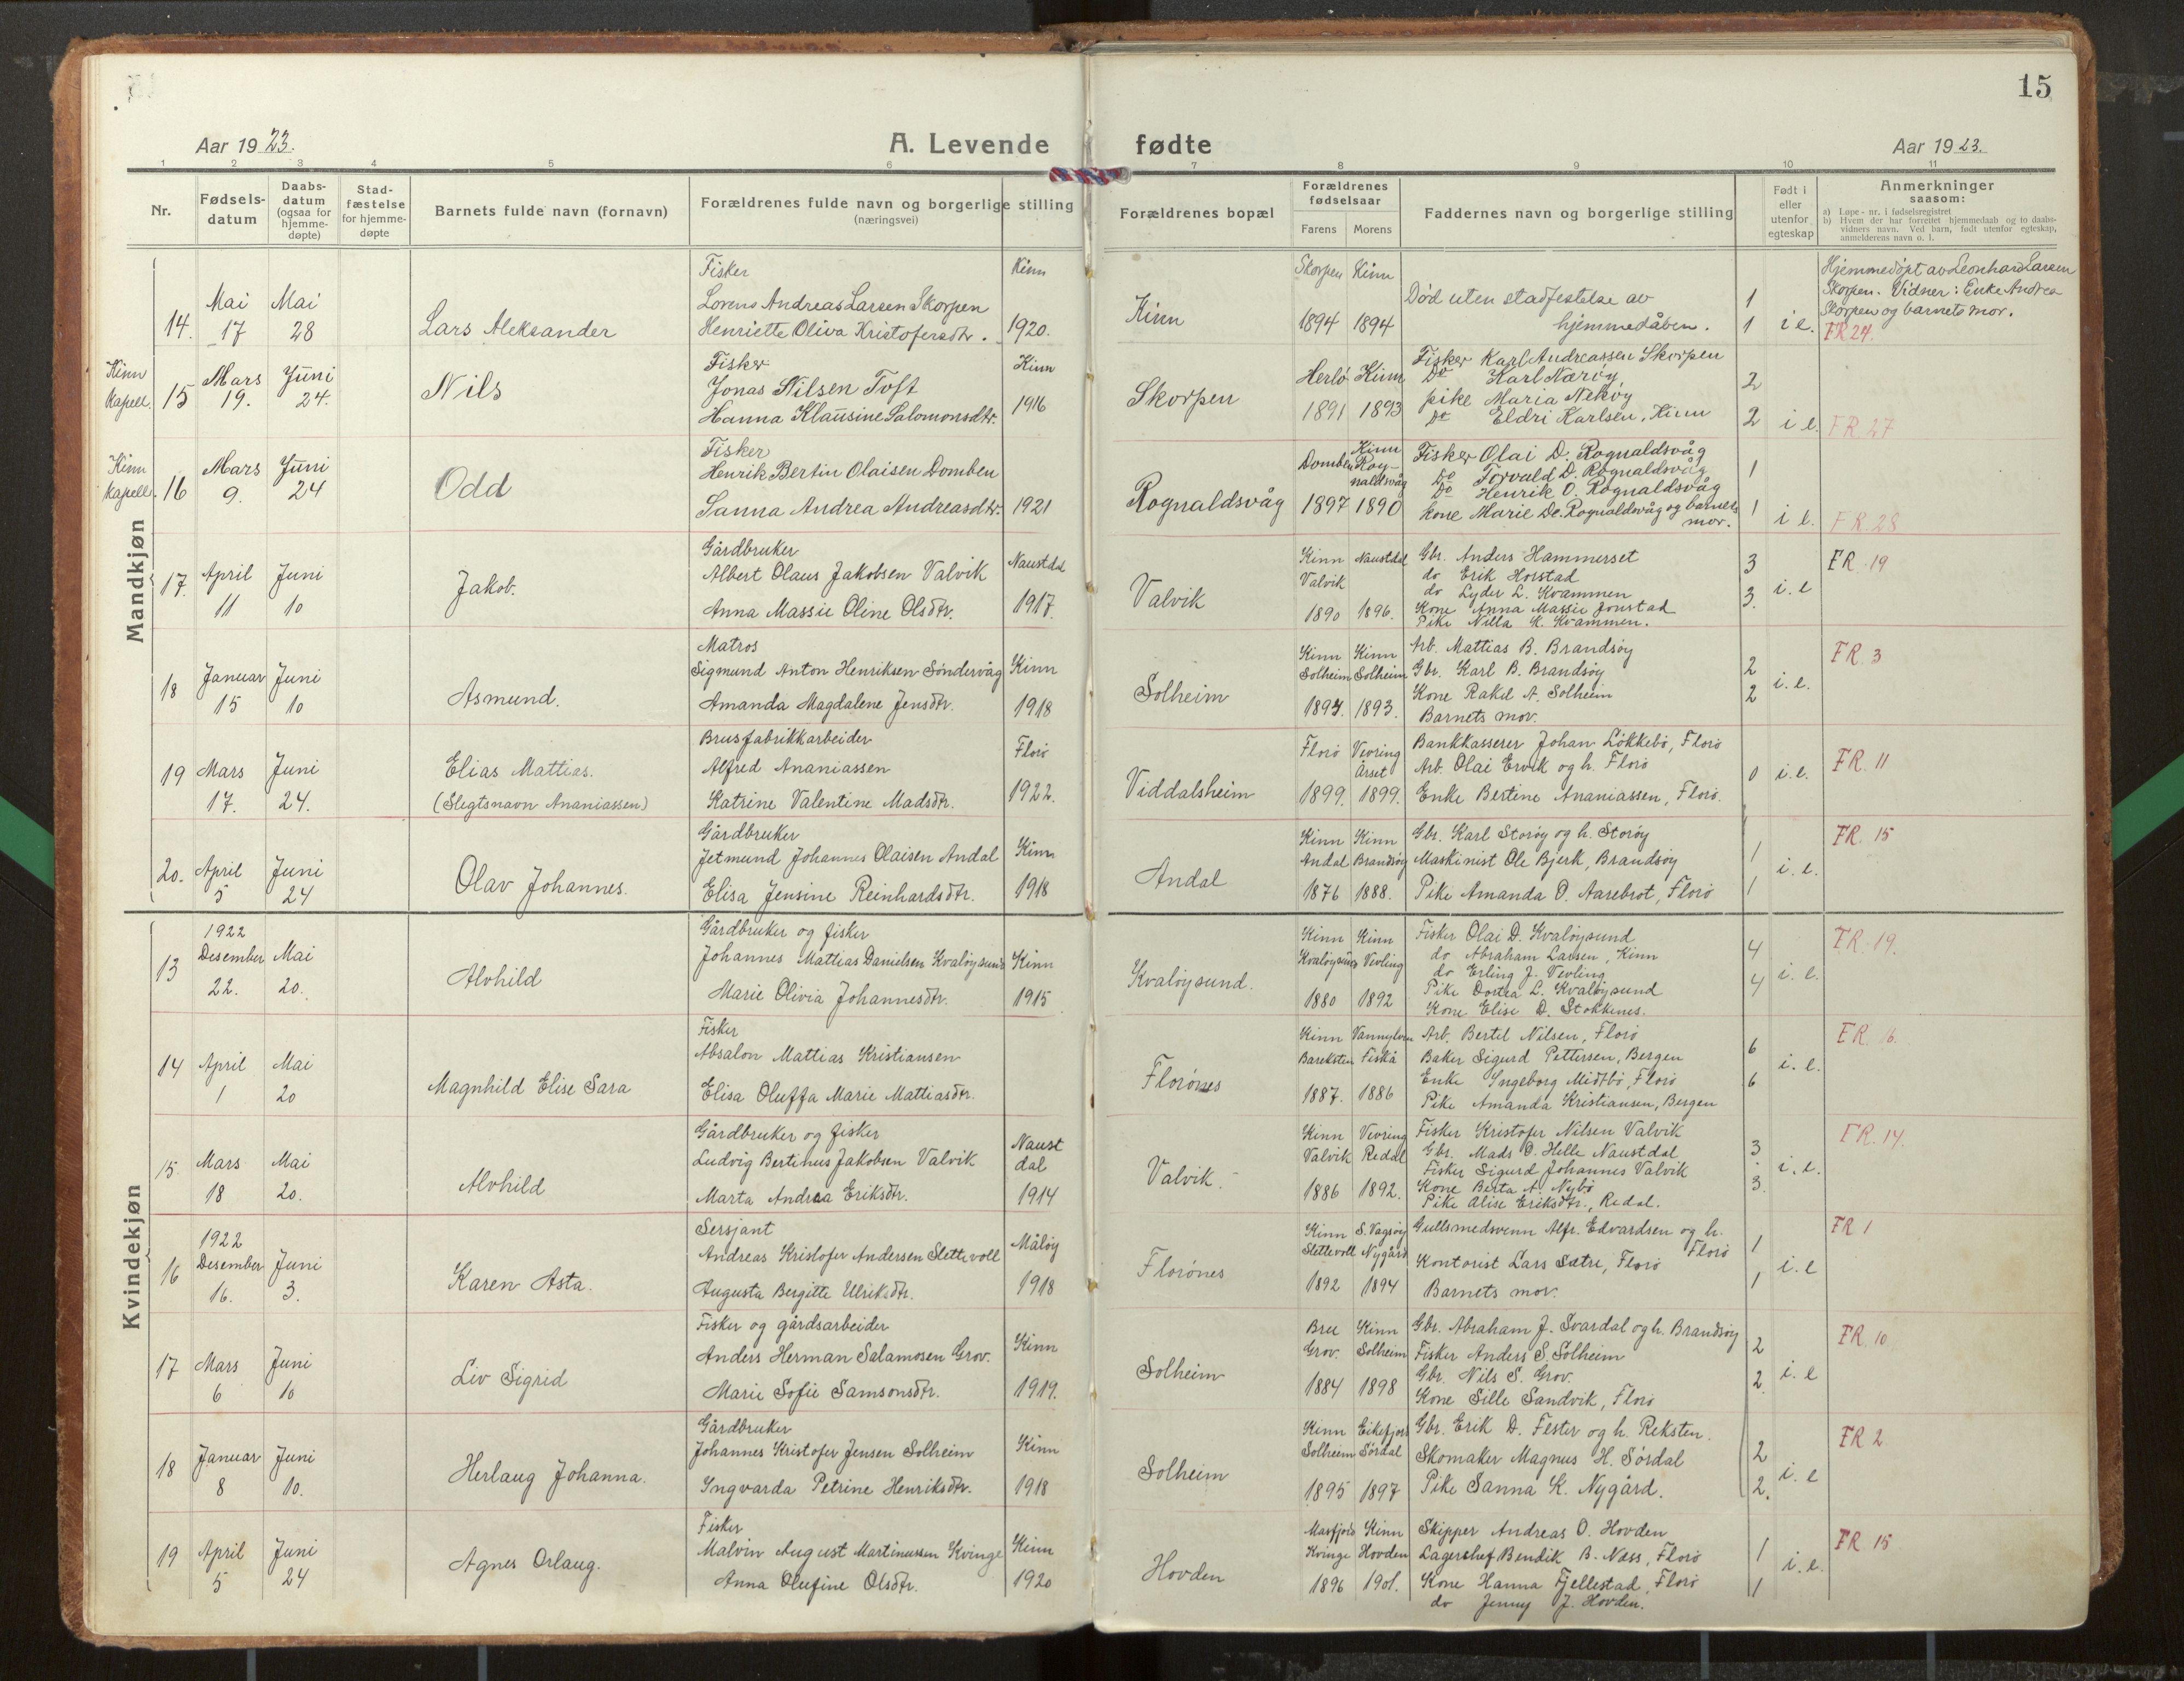 15
Aar 1923.
A. Levende fødte
Aar 1923.
1 2 3 4 5 6 7 8 9 10 11
Nr.
Fødsels-
datum
Daabs-
datum
(ogsaa for
hjemme-
døpte)
Stad-
fæstelse
for hjemme-
døpte
Barnets fulde navn (fornavn)
Forældrenes fulde navn og borgerlige stilling
(næringsvei)
Forældrenes bopæl
Forældrenes
fødselsaar
Farens Morens
Faddernes navn og borgerlige stilling
Født i
eller
utenfor
egteskap
Anmerkninger
saasom:
a) Løpe-nr. i fødselsregistret
b) Hvem der har forrettet hjemmedaab og to daabs-
vidners navn. Ved barn, født utenfor egteskap,
anmelderens navn o. l.
Mandkjøn
14.
Mai
17
Mai
28
Lars Aleksander
Fisker
Lorens Andreas Larsen Skorpen
Henriette Oliva Kristofersdtr.
Kinn
1920.
Kinn
Skorpen Kinn
1894 1894
Død uten stadfestelse av
hjemmedåben.
1
1
i e.
Hjemmedøpt av Leonhard Larsen
Skorpen. Vidner: Enke Andrea
Skorpen og barnets mor.
FR 24.
Kinn
Kapell.
15
Mars
19.
Juni
24.
Nils
Fisker
Jonas Nilsen Toft
Hanna Klausine Salomonsdtr.
Kinn
1916
Skorpen
Herlø Kinn
1891 1893
Fisker Karl Andreassen Skorpen
Do Karl Nærøy
pike Maria Nekøy
Do Eldri Karlsen, Kinn
2
2
i e.
FR 27
Kinn
Kapell.
16
Mars
9.
Juni
24
Odd
Fisker
Henrik Bertin Olaisen Domben
Sanna Andrea Andreasdtr.
1921
Rognaldsvåg
Domben
Kinn
Rog-
naldsvåg
1897 1890
Fisker Olai D. Rognaldsvåg
Do Torvald D. Rognaldsvåg
Do Henrik O. Rognaldsvåg
kone Marie Do. Rognaldsvåg og barnets
mor.
1
1
i e.
FR. 28
17.
April
11
Juni
10
Jakob.
Gårdbruker
Albert Olaus Jakobsen Valvik
Anna Massie Oline Olsdtr.
Naustdal
1917.
Valvik
Kinn Naustdal
Valvik
1890 1896.
Gbr. Anders Hammerset
do Erik Horstad
do Lyder L. Kvammen
Kone Anna Massie Jonstad
Pike Nilla K. Kvammen.
3
3.
i. e
FR. 19
18
Januar
15
Juni
10
Asmund.
Matros
Sigmund Anton Henriksen Søndervåg
Amanda Magdalene Jensdtr.
Kinn
1918
Solheim
Kinn Kinn
Solheim Solheim
1894. 1893.
Arb. Mattias B. Brandsøy
Gbr. Karl B. Brandsøy
Kone Rakel A. Solheim
Barnets mor.
2
2
i. e.
FR. 3
19
Mars
17.
Juni
24.
Elias Mattias.
(Slegtsnavn Ananiassen)
Brusfabrikkarbeider
Alfred Ananiassen
Katrine Valentine Madsdtr.
Florø
1922.
Viddalsheim
Florø Vevring
Årset
1899. 1899.
Bankkasserer Johan Løkkebø, Florø
Arb. Olai Ervik og h. Florø
Enke Bertine Ananiassen, Florø.
0
i. e.
FR. 11
20.
April
5
Juni
24
Olav Johannes.
Gårdbruker
Jetmund Johannes Olaisen Andal
Elisa Jensine Reinhardsdtr.
Kinn
1918
Andal
Kinn Kinn
Andal Brandsøy
1876 1888.
Gbr. Karl Storøy og h. Storøy
Maskinist Ole Bjerk, Brandsøy
Pike Amanda O. Aarebrot, Florø
1
1
i. e.
FR. 15
Kvindekjøn
13
1922
Desember
22.
Mai
20.
Alvhild
Gårdbruker og fisker
Johannes Mattias Danielsen Kvaløysund
Marie Olivia Johannesdtr.
Kinn
1915
Kvaløysund.
Kinn Kinn
Kvaløysund Vevling
1880 1892
Fisker Olai D. Kvaløysund
do Abraham Larsen, Kinn
do Erling J. Vevling
Pike Dortea L. Kvaløysund
Kone Elise D. Stokkenes.
4
4
i. e.
FR. 19.
14
April
1
Mai
20
Magnhild Elise Sara
Fisker
Absalon Mattias Kristiansen
Elisa Oluffa Marie Mattiasdtr.
Florønes
Kinn Vannylven
Bareksten Fiskå
1887. 1886
Arb. Bertel Nilsen, Florø
Baker Sigurd Pettersen, Bergen
Enke Ingeborg Midtbø, Florø
Pike Amanda Kristiansen, Bergen
6
6
i. e.
FR. 16.
15.
Mars
18
Mai
20.
Alvhild
Gårdbruker og fisker
Ludvig Bertinus Jakobsen Valvik
Marta Andrea Eriksdtr.
Naust
dal
1914
Valvik.
Kinn Vevring
Valvik Redal
1886 1892.
Fisker Kristofer Nilsen Valvik
Gbr. Mads O. Helle Naustdal
Fisker Sigurd Johannes Valvik
Kone Berta A. Nybø
Pike Alise Eriksdtr., Redal.
3
3.
i. e.
FR. 14.
16
1922
Desember
16.
Juni
3.
Karen Asta.
Sersjant
Andreas Kristofer Andersen Slettevoll
Augusta Bergitte Ulriksdtr.
Måløy
1918
Florønes
Kinn S. Vågsøy
Slettevoll Nygård
1892 1894
Gullsmedsvenn Alfr. Edvardsen og h.
Florø
Kontorist Lars Sætre, Florø
Barnets mor.
1
1
i. e
FR 1
17
Mars
6
Juni
10
Liv Sigrid
Fisker og gårdsarbeider
Anders Herman Salamosen Grov.
Marie Sofie Samsonsdtr.
Kinn
1919.
Solheim
Bru Kinn
Grov. Solheim
1884 1898
Gbr. Abraham J. Svardal og h. Brandsøy
Fisker Anders S. Solheim
Gbr. Nils S. Grov.
Kone Sille Sandvik, Florø
2
2.
i. e
FR. 10
18
Januar
8
Juni
10.
Herlaug Johanna.
Gårdbruker
Johannes Kristofer Jensen Solheim
Ingvarda Petrine Henriksdtr.
Kinn
1918
Solheim
Kinn Eikefjord
Solheim Sørdal
1895 1897
Gbr. Erik D. Fester og h. Reksten.
Skomaker Magnus H. Sørdal
Pike Sanna K. Nygård.
2
2.
i. e
FR 2
19
April
5
Juni
24
Agnes Orlaug.
Fisker
Malvin August Martinussen Kvinge
Anna Olufine Olsdtr.
Kinn
1920
Hovden
Masfjord Kinn
Kvinge Hovden
1896 1901.
Skipper Andreas O. Hovden
Lagerchef Bendik B. Næss, Florø
Kone Hanna Fjellestad, Florø
do Jenny J. Hovden.
1
1
i. e.
FR 15